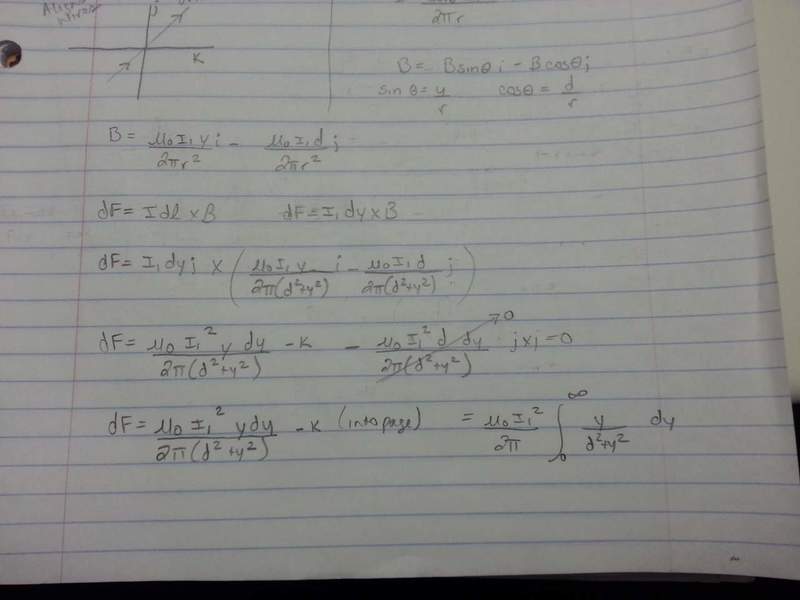 2πr
K
B = Bsinθ i - Bcosθ j
sin θ = y/r cosθ = d/r
B = μ₀ I₁ y i / 2πr² - μ₀ I₁ d j / 2πr²
dF = I dl × B dF = I₁ dy × B
dF = I₁ dy j × ( μ₀ I₁ y / 2π(d²+y²) i - μ₀ I₁ d / 2π(d²+y²) j )
dF = μ₀ I₁² y dy / 2π(d²+y²) -K - μ₀ I₁² d dy / 2π(d²+y²) → 0 j×j = 0
dF = μ₀ I₁² y dy / 2π(d²+y²) -K (into page) = μ₀ I₁² / 2π ∫₀^∞ y / d²+y² dy